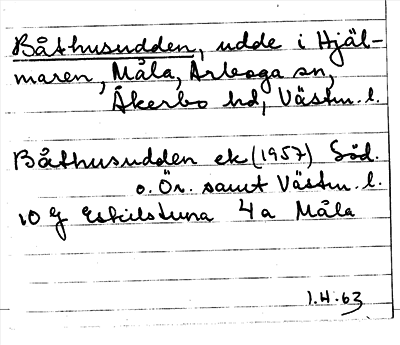 Båthusudden, udde i Hjäl-
maren, Måla, Arboga sn,
Åkerbo hd, Västm. l.
Båthusudden ek (1957) Söd.
o. Ör. samt Västm. l.
10 g Eskilstuna 4 a Måla
1.H.63